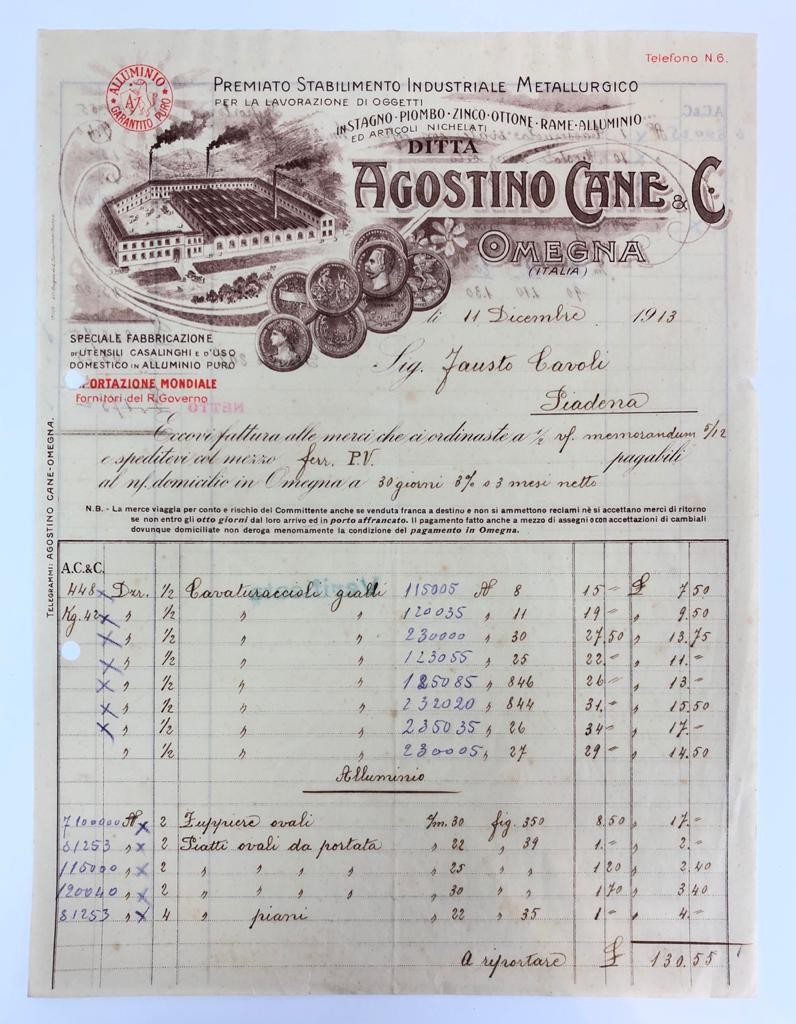 Telefono N.6.
ALLUMINIO
AZ
GARANTITO PURO
PREMIATO STABILIMENTO INDUSTRIALE METALLURGICO
PER LA LAVORAZIONE DI OGGETTI
IN STAGNO·PIOMBO·ZINCO·OTTONE·RAME·ALLUMINIO
ED ARTICOLI NICHELATI
DITTA
AGOSTINO CANE & C.
OMEGNA
(ITALIA)
li 11 Dicembre 1913
SPECIALE FABBRICAZIONE
DI UTENSILI CASALINGHI E D'USO
DOMESTICO IN ALLUMINIO PURO
PORTAZIONE MONDIALE
Fornitori del R. Governo
Sig. Fausto Cavoli
Piadena
Eccovi fattura alle merci che ci ordinaste a 1/2 vs/. memorandum 5/12
e speditevi col mezzo ferr. P.V. pagabili
al nf. domicilio in Omegna a 30 giorni 3% o 3 mesi netto
N.B. - La merce viaggia per conto e rischio del Committente anche se venduta franca a destino e non si ammettono reclami nè si accettano merci di ritorno
se non entro gli otto giorni dal loro arrivo ed in porto affrancato. Il pagamento fatto anche a mezzo di assegni o con accettazioni di cambiali
dovunque domiciliate non deroga menomamente la condizione del pagamento in Omegna.
TELEGRAMMI: AGOSTINO CANE-OMEGNA.
A.C.&C.
448 x Dzr. 1/2 Cavaturaccioli gialli 115005 N 8 15 " £ 7.50
Kg. 42 x " 1/2 " " 120035 " 11 19 " " 9.50
x " 1/2 " " 230000 " 30 27.50 " 13.75
x " 1/2 " " 123055 " 25 22 " " 11.-
x " 1/2 " " 125085 " 846 26 " " 13.-
x " 1/2 " " 232020 " 844 31 " " 15.50
x " 1/2 " " 235035 " 26 34 " " 17.-
" 1/2 " " 230005 " 27 29 " " 14.50
Alluminio
7100000 N x 2 Zuppiere ovali c/m. 30 fig. 350 8.50 " 17.-
81253 " x 2 Piatti ovali da portata " 22 " 39 1.- " 2.-
115000 " x 2 " " " " 25 " " 1 20 " 2.40
120040 " x 2 " " " " 30 " " 1 70 " 3.40
81253 " x 4 " piani " 22 " 35 1 - " 4.-
A riportare £ 130.55